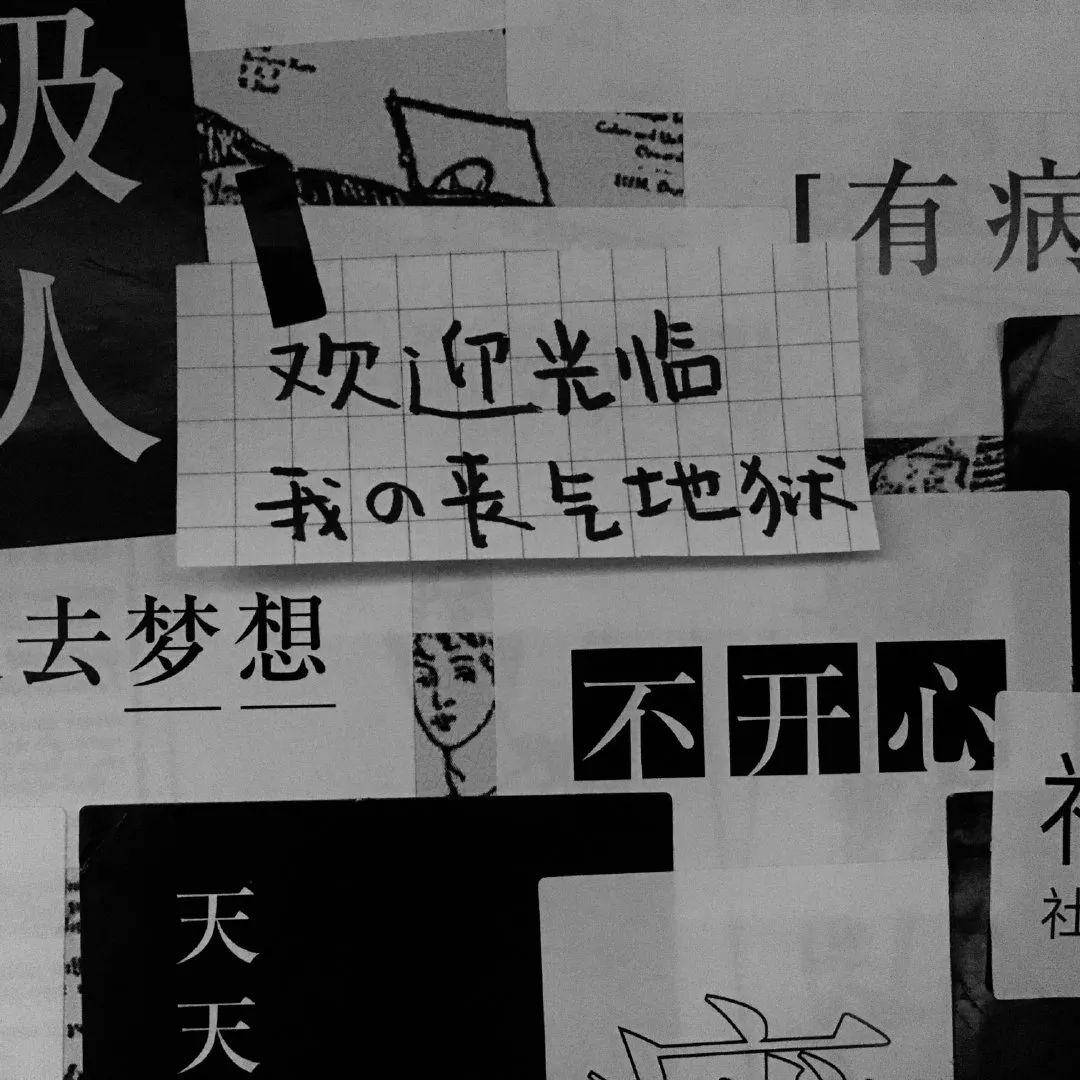 极
人
「有病
欢迎光临
我の丧气地狱
去梦想
不开心
社
天
天